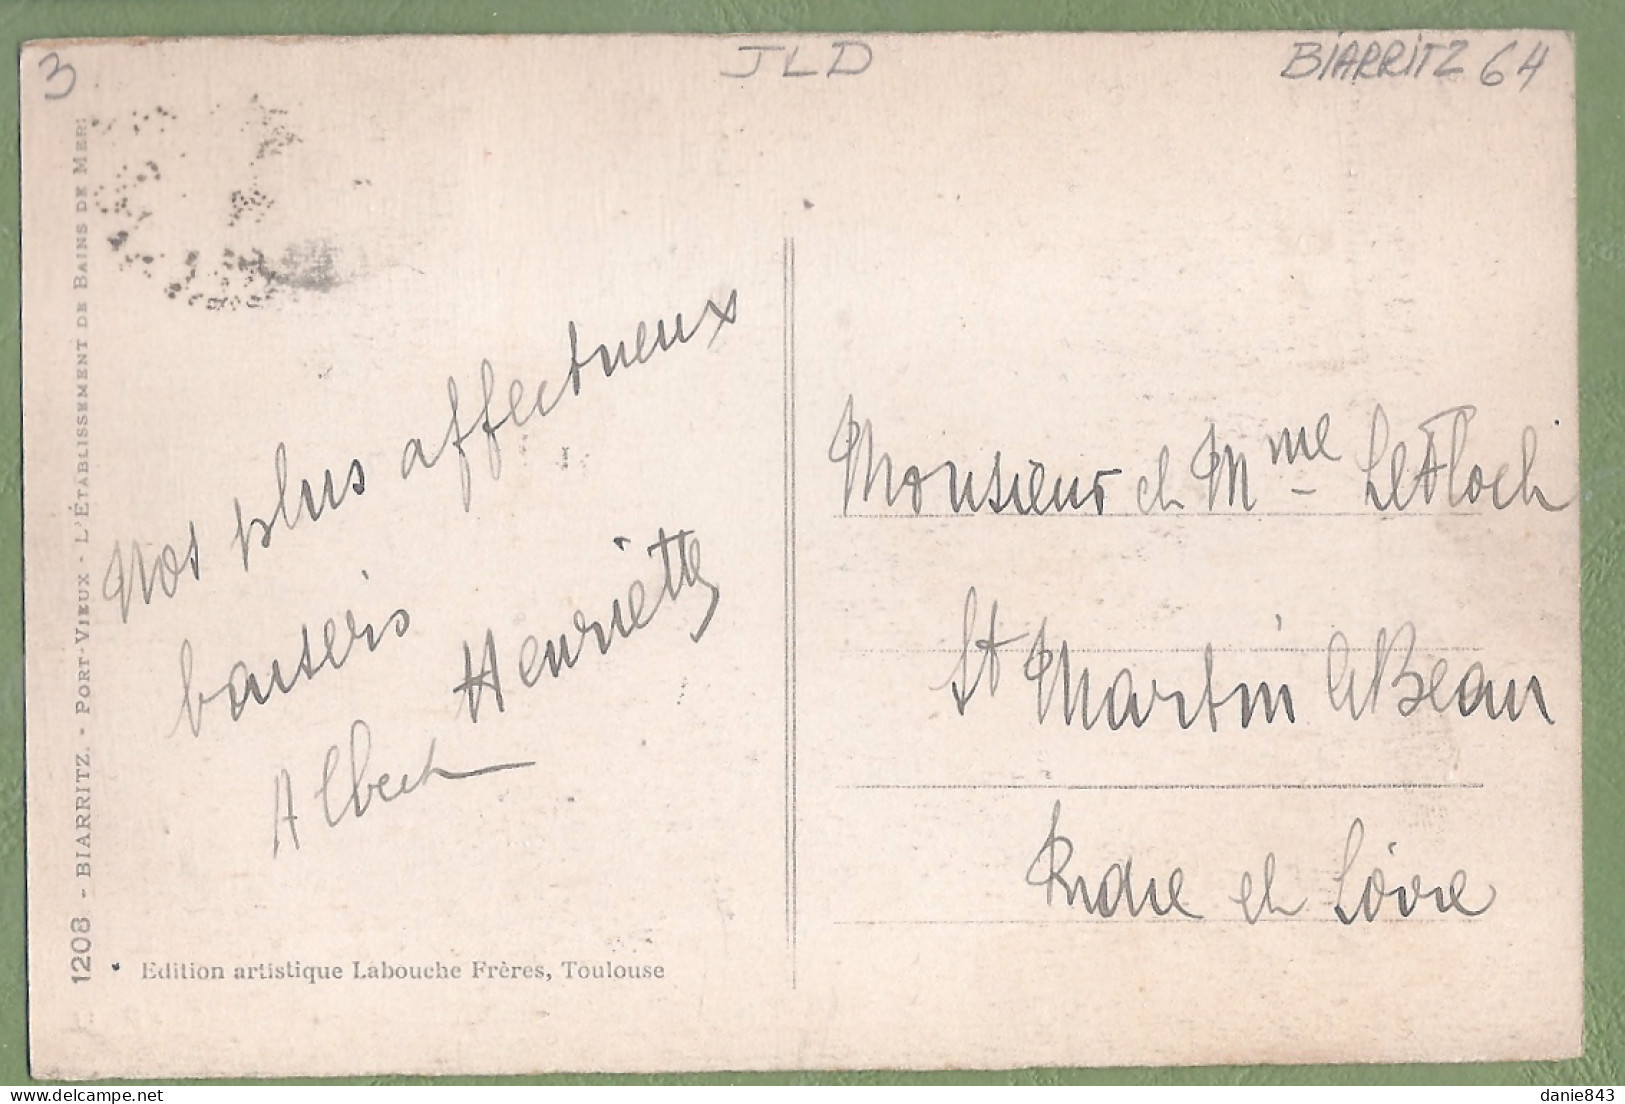 3
JLD
BIARRITZ 64
1208 - BIARRITZ. - PORT-VIEUX - L'ÉTABLISSEMENT DE BAINS DE MER
Nos plus affectueux
baisers
Henriette
Albert
Edition artistique Labouche Frères, Toulouse
Monsieur et Mme Le Floch
St Martin le Beau
Indre et Loire
danie843